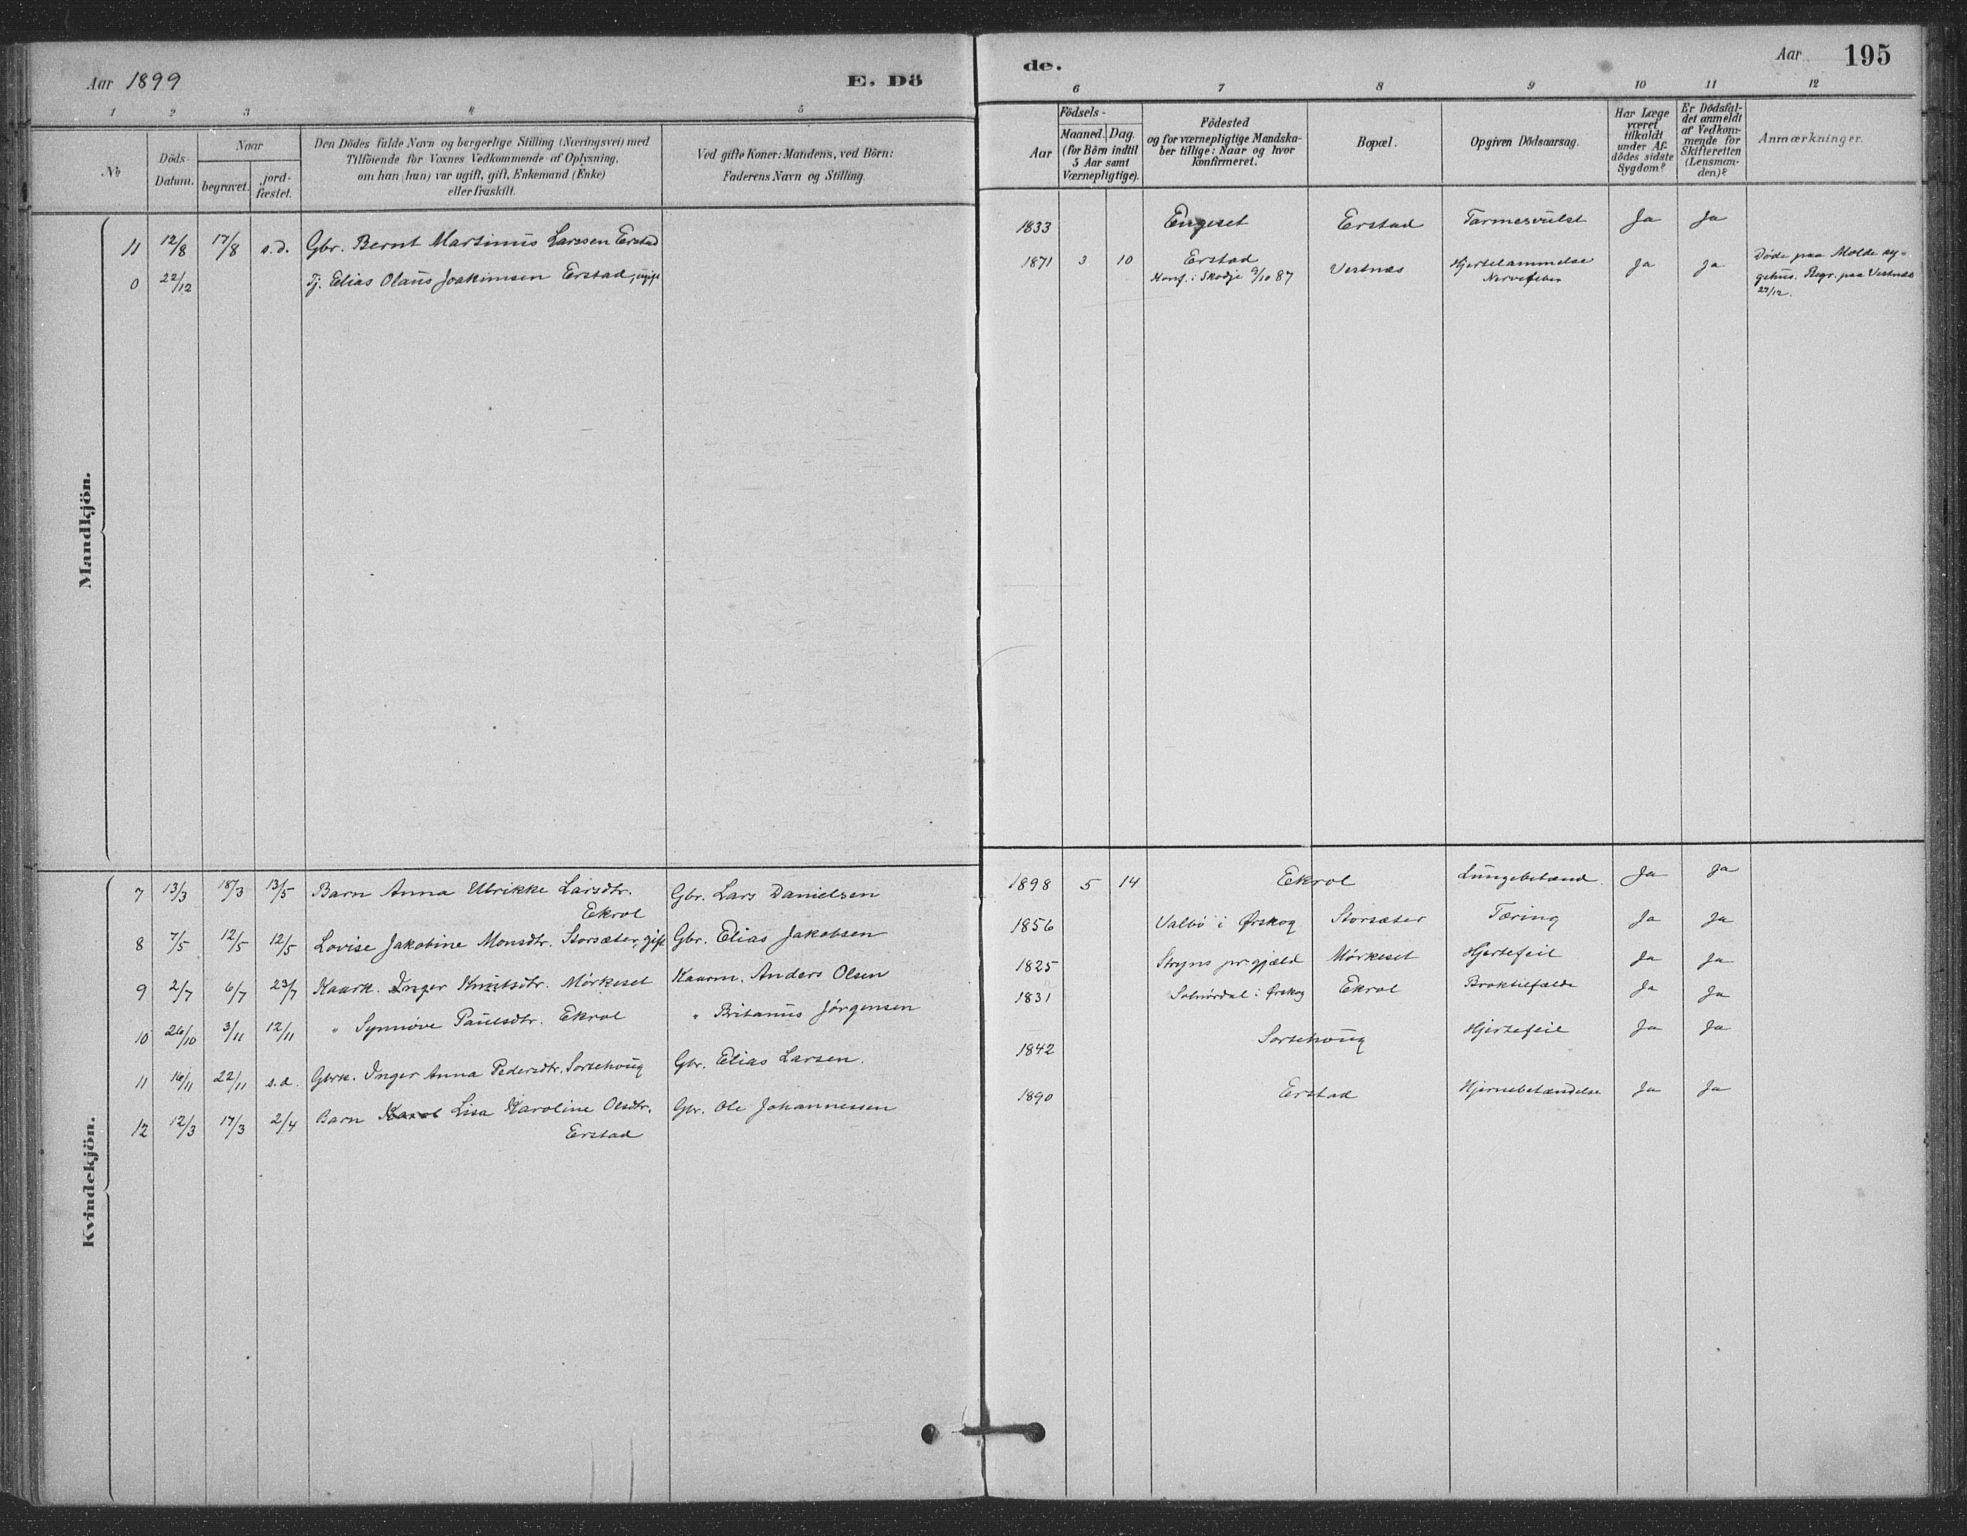 Aar 1899
E. Dö
de.
Aar
195
1 2 3 4 5
6 7 8 9 10 11 12
No
Döds-
Datum.
Naar
begravet.
jord-
fæstet.
Den Dödes fulde Navn og borgerlige Stilling (Næringsvei) med
Tilföiende for Voxnes Vedkommende af Oplysning,
om han (hun) var ugift, gift, Enkemand (Enke)
eller fraskilt.
Ved gifte Koner: Mandens, ved Börn:
Faderens Navn og Stilling.
Födsels-
Aar
Maaned. Dag.
(for Börn indtil
5 Aar samt
Værnepligtige).
Födested
og for værnepligtige Mandska-
ber tillige: Naar og hvor
Konfirmeret.
Bopæl.
Opgiven Dödsaarsag.
Har Læge
været
tilkaldt
under Af-
dödes sidste
Sygdom?
Er Dödsfal-
det anmeldt
af Vedkom-
mende for
Skifteretten
(Lensman-
den)?
Anmærkninger.
Mandkjön.
11 12/8 17/8 s.d. Gbr. Bernt Martinus Larssen Erstad
1833 Engeset Erstad Tarmesvulst Ja Ja
0 22/12 Tj. Elias Olaus Joakimsen Erstad, ugift
1871 3 10 Erstad Vestnæs Hjertelammelse Ja Ja Døde paa Molde sy-
Konf. i Skodje 9/10 87 Nervefeber gehus. Begr. paa Vestnæs
29/12.
Kvindekjön.
7 13/3 18/3 13/5 Barn Anna Ulrikke Larsdtr. Gbr. Lars Danielsen
Ekrol
1898 5 14 Ekrol Lungebetænd. Ja Ja
8 7/5 12/5 12/5 Lovise Jakobine Monsdtr. Storsæter, gift Gbr. Elias Jakobsen
1856 Valbø i Ørskog Storsæter Tæring Ja Ja
9 2/7 6/7 23/7 Kaark. Inger Knutsdtr. Mørkeset Kaarm. Anders Olsen
1825 Stryns pr.gjæld Mørkeset Hjertefeil Ja Ja
10 26/10 3/11 12/11 " Synnøve Paulsdtr. Ekrol " Britanus Jørgensen
1831 Solnørdal i Ørskog Ekrol Broktilfælde Ja Ja
11 16/11 22/11 s.d. Gbrk. Inger Anna Pedersdtr. Sortehoug Gbr. Elias Larsen.
1842 Sortehoug Hjertefeil Ja Ja
12 12/3 17/3 2/4 Barn Lisa Karoline Olsdtr. Gbr. Ole Johannessen
Erstad
1890 Erstad Hjernebetændelse Ja Ja